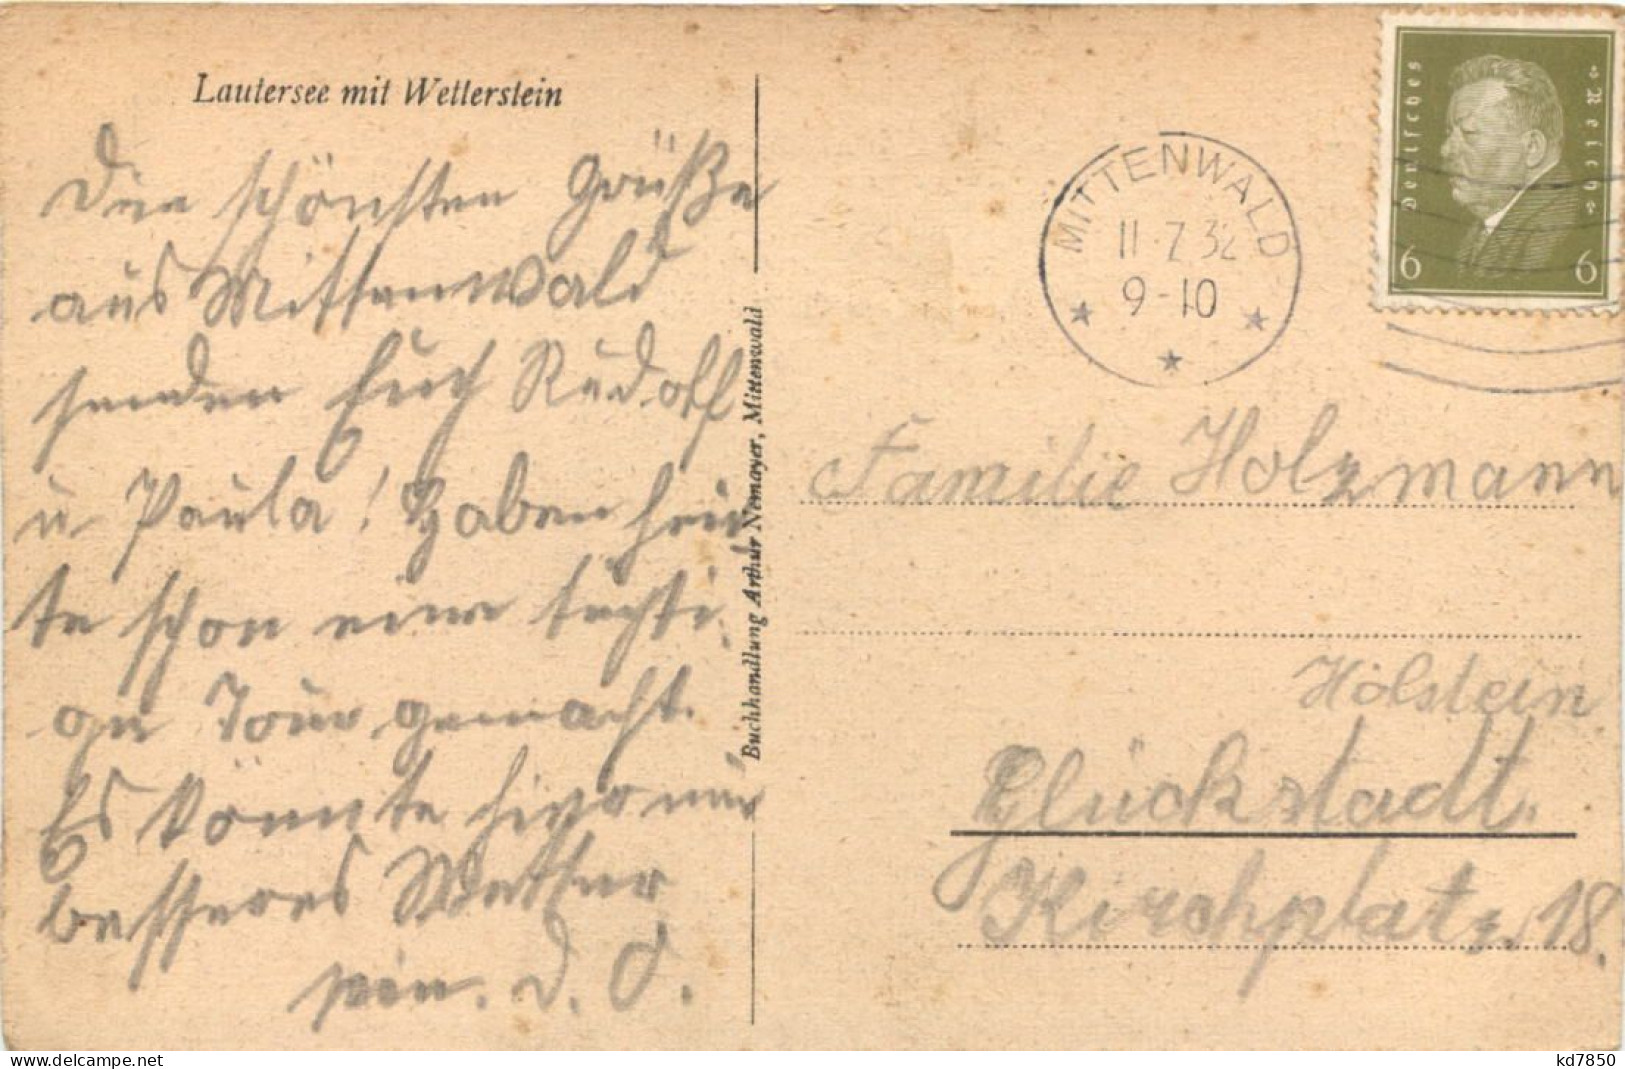 Lautersee mit Wetterstein
Die schönsten Grüße
aus Mittenwald
senden Euch Rudolf
u. Paula! Haben heu
te schon eine tüchti
ge Tour gemacht.
Es könnte hier nur
besseres Wetter
sein. D. O.
Buchhandlung Arthur Nemayer, Mittenwald
MITTENWALD
11.7.32
9-10
Deutsches Reich
6 6
Familie Holzmann
Holstein
Glückstadt.
Kirchplatz 18.
kd7850